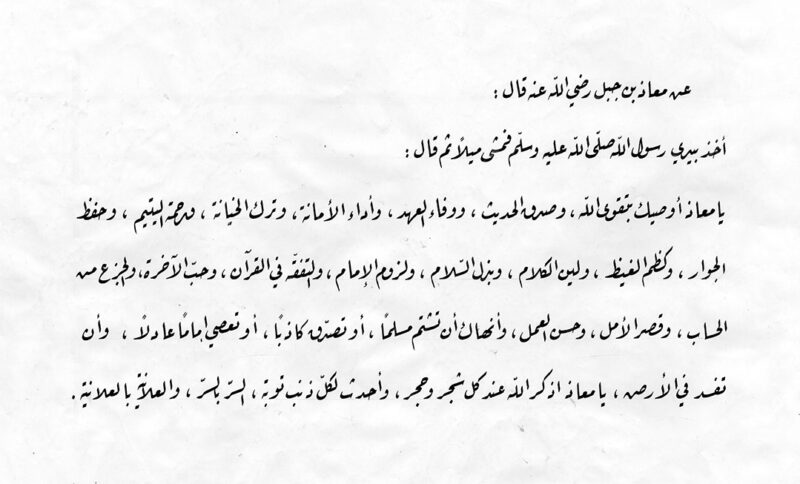 عن معاذ بن جبل رضي الله عنه قال :
أخذ بيدي رسول الله صلّى الله عليه وسلّم فمشى ميلاً ثم قال :
يا معاذ أوصيك بتقوى الله ، وصدق الحديث ، ووفاء العهد ، وأداء الأمانة ، وترك الخيانة ، ورحمة اليتيم ، وحفظ
الجوار ، وكظم الغيظ ، ولين الكلام ، وبذل السّلام ، ولزوم الإمام ، والتفقّه في القرآن ، وحبّ الآخرة ، والجزع من
الحساب ، وقصر الأمل ، وحسن العمل ، وأنهاك أن تشتم مسلمًا ، أو تصدّق كاذبًا ، أو تعصي إمامًا عادلاً ، وأن
تفسد في الأرض ، يا معاذ اذكر الله عند كل شجر وحجر ، وأحدث لكلّ ذنب توبة ، السرّ بالسرّ ، والعلانية بالعلانية .